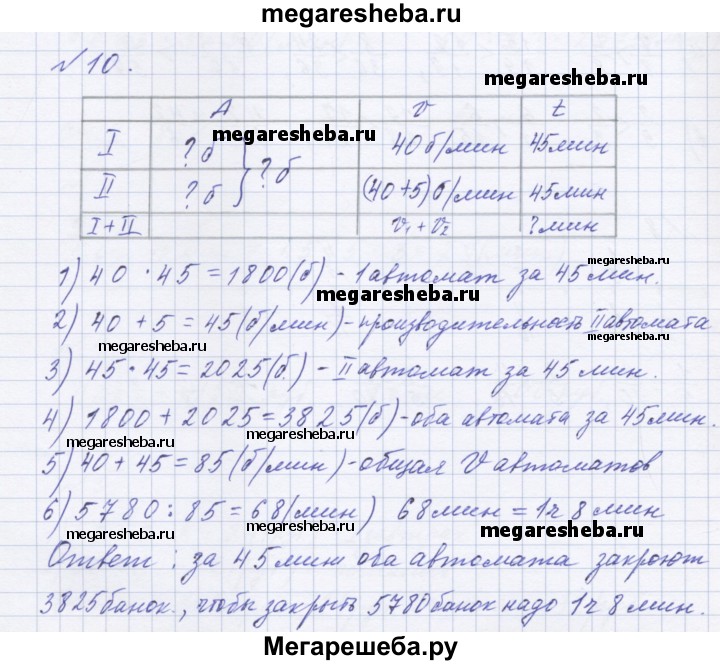 megaresheba.ru
№ 10.
megaresheba.ru
A v t
megaresheba.ru
I ? б } ? б 40 б/мин 45 мин
II ? б (40 + 5) б/мин 45 мин
megaresheba.ru
I + II v₁ + v₂ ? мин
megaresheba.ru
1) 40 · 45 = 1800 (б) - 1 автомат за 45 мин.
megaresheba.ru
2) 40 + 5 = 45 (б/мин) - производительность II автомата
megaresheba.ru megaresheba.ru
3) 45 · 45 = 2025 (б.) - II автомат за 45 мин.
megaresheba.ru
4) 1800 + 2025 = 3825 (б) - оба автомата за 45 мин.
megaresheba.ru megaresheba.ru
5) 40 + 45 = 85 (б/мин) - общая V автоматов
megaresheba.ru
6) 5780 : 85 = 68 (мин) 68 мин = 1 ч 8 мин
megaresheba.ru megaresheba.ru megaresheba.ru
Ответ: за 45 мин оба автомата закроют
3825 банок, чтобы закрыть 5780 банок надо 1 ч 8 мин.
Мегарешеба.ру